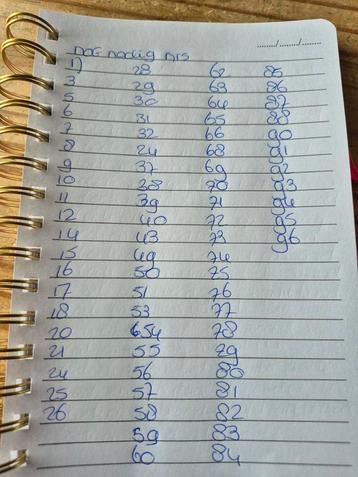 nog nodig nrs
1)
3
5
6
7
8
9
10
11
12
14
15
16
17
18
20
21
24
25
26
28
29
30
31
32
24
37
38
39
40
43
49
50
51
53
54
55
56
57
58
59
60
62
63
64
65
66
68
69
70
71
72
73
74
75
76
77
78
79
80
81
82
83
84
85
86
87
88
90
91
92
93
94
95
96